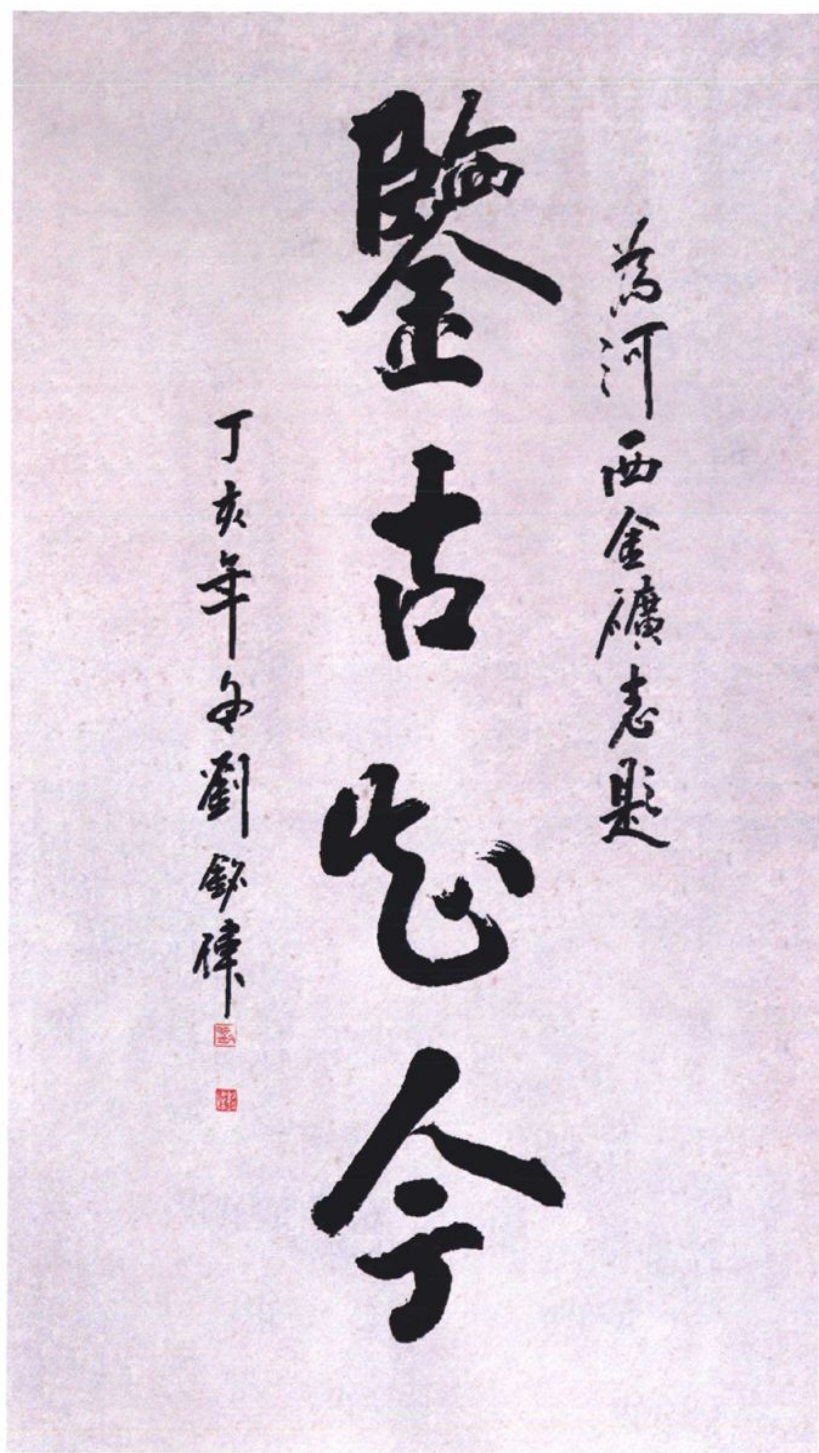 為河西金礦志題
鑒古知今
丁亥年冬劉銘